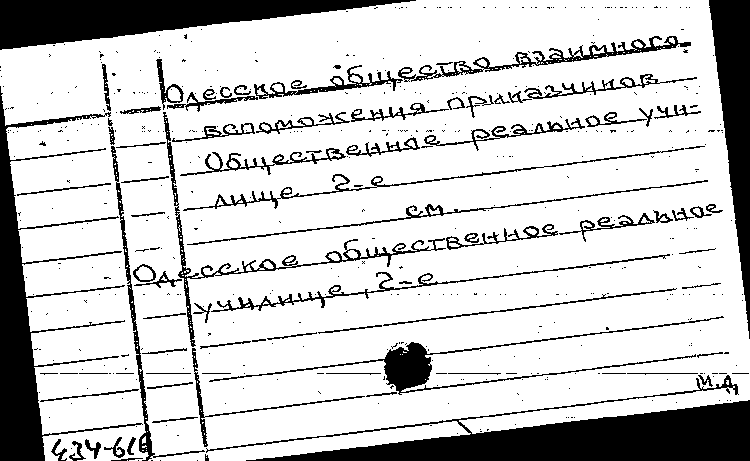 Одесское общество взаимного
вспоможения приказчиков
Общественное реальное учи-
лище 2-е
см.
Одесское общественное реальное
училище, 2-е
М.Д.